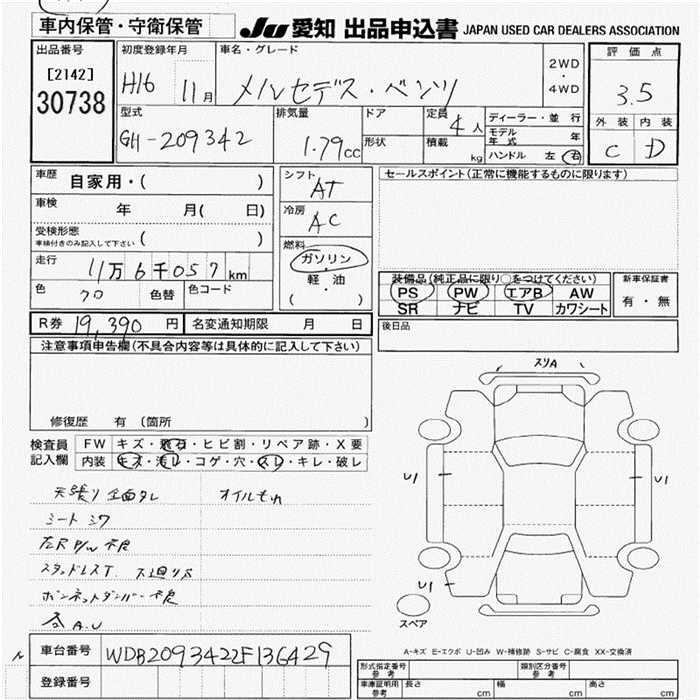 車内保管・守衛保管
JU 愛知 出品申込書 JAPAN USED CAR DEALERS ASSOCIATION
出品番号
[2142]
30738
初度登録年月
H16 11月
車名・グレード
メルセデス・ベンツ
2WD
・
4WD
評価点
3.5
型式
GH-209342
排気量
1.79cc
ドア
形状
定員
4人
積載
kg
ディーラー・並行
モデル年式 年
ハンドル 左・右
外装 内装
C D
車歴 自家用・( )
車検 年 月( 日)
受検形態
車検付きのみ記入して下さい ( )
走行 11万6千057km
色 クロ 色替 色コード
シフト
AT
冷房
AC
燃料
ガソリン
・
軽油
( ・ )
セールスポイント(正常に機能するものに限ります)
装備品(純正品に限り○をつけてください)
PS PW エアB AW
SR ナビ TV カワシート
新車保証書
有・無
R券 19,390円 名変通知期限 月 日
後日品
注意事項申告欄(不具合内容等は具体的に記入して下さい)
修復歴 有(箇所 )
検査員
記入欄
FW キズ・飛石・ヒビ割・リペア跡・X要
内装 キズ・汚レ・コゲ・穴・スレ・キレ・破レ
天張り全面タレ オイルもれ
シート シワ
左R P/W 不良
スタッドレスT. 下廻りS
ボンネットダンパー不良
各 A.U
スリA
U1
U1
U1
スペア
A-キズ E-エクボ U-凹み W-補修跡 S-サビ C-腐食 XX-交換済
車台番号 WDB2093422F136429
登録番号
型式指定番号
参考
類別区分番号
参考
車庫証明用
参考
長さ cm 幅 cm 高さ cm